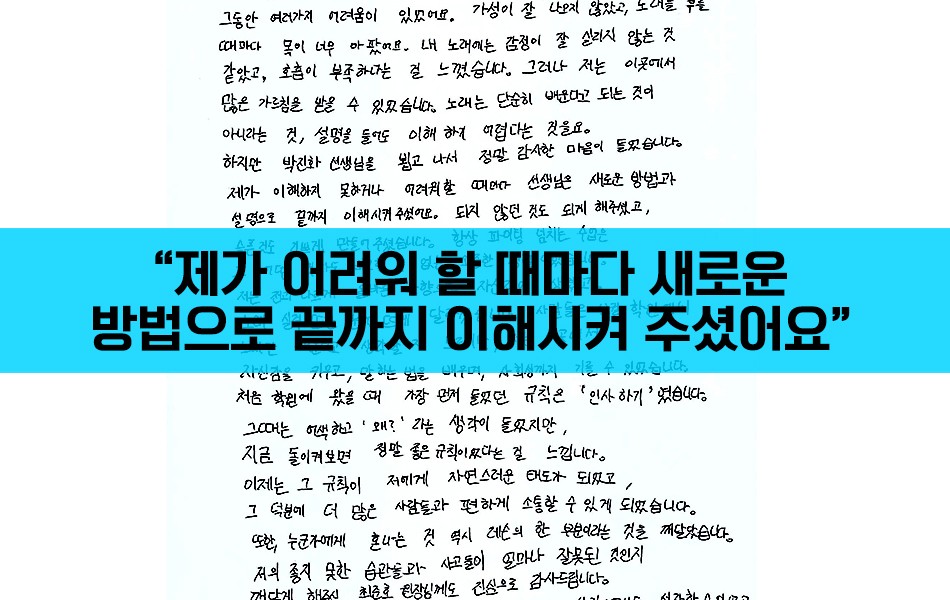 그동안 여러가지 어려움이 있었어요. 가성이 잘 나오지 않았고, 노래를 부를
때마다 목이 너무 아팠어요. 내 노래에는 감정이 잘 실리지 않는 것
같았고, 호흡이 부족하다는 걸 느꼈습니다. 그러나 저는 이곳에서
많은 가르침을 받을 수 있었습니다. 노래는 단순히 배운다고 되는 것이
아니라는 것, 설명을 들어도 이해 하기 어렵다는 것을요.
하지만 박진화 선생님을 뵙고 나서 정말 감사한 마음이 들었습니다.
제가 이해하지 못하거나 어려워할 때마다 선생님은 새로운 방법과
설명으로 끝까지 이해시켜주셨어요. 되지 않던 것도 되게 해주셨고,
만들어 주셨습니다. 항상 파이팅 넘치는
“제가 어려워 할 때마다 새로운
방법으로 끝까지 이해시켜 주셨어요”
자신감을 키우고, 말하는 법을 배우며, 사회성까지 기를 수 있었습니다.
처음 학원에 왔을 때 가장 먼저 들었던 규칙은 '인사하기' 였습니다.
그때는 어색하고 '왜?' 라는 생각이 들었지만,
지금 돌이켜보면 정말 좋은 규칙이었다는 걸 느낍니다.
이제는 그 규칙이 저에게 자연스러운 태도가 되었고,
그 덕분에 더 많은 사람들과 편하게 소통할 수 있게 되었습니다.
또한, 누군가에게 혼나는 것 역시 레슨의 한 부분이라는 것을 깨달았습니다.
저의 좋지 못한 습관들과 사고들이 얼마나 잘못된 것인지
깨닫게 해주신 최준호 원장님께도 진심으로 감사드립니다.